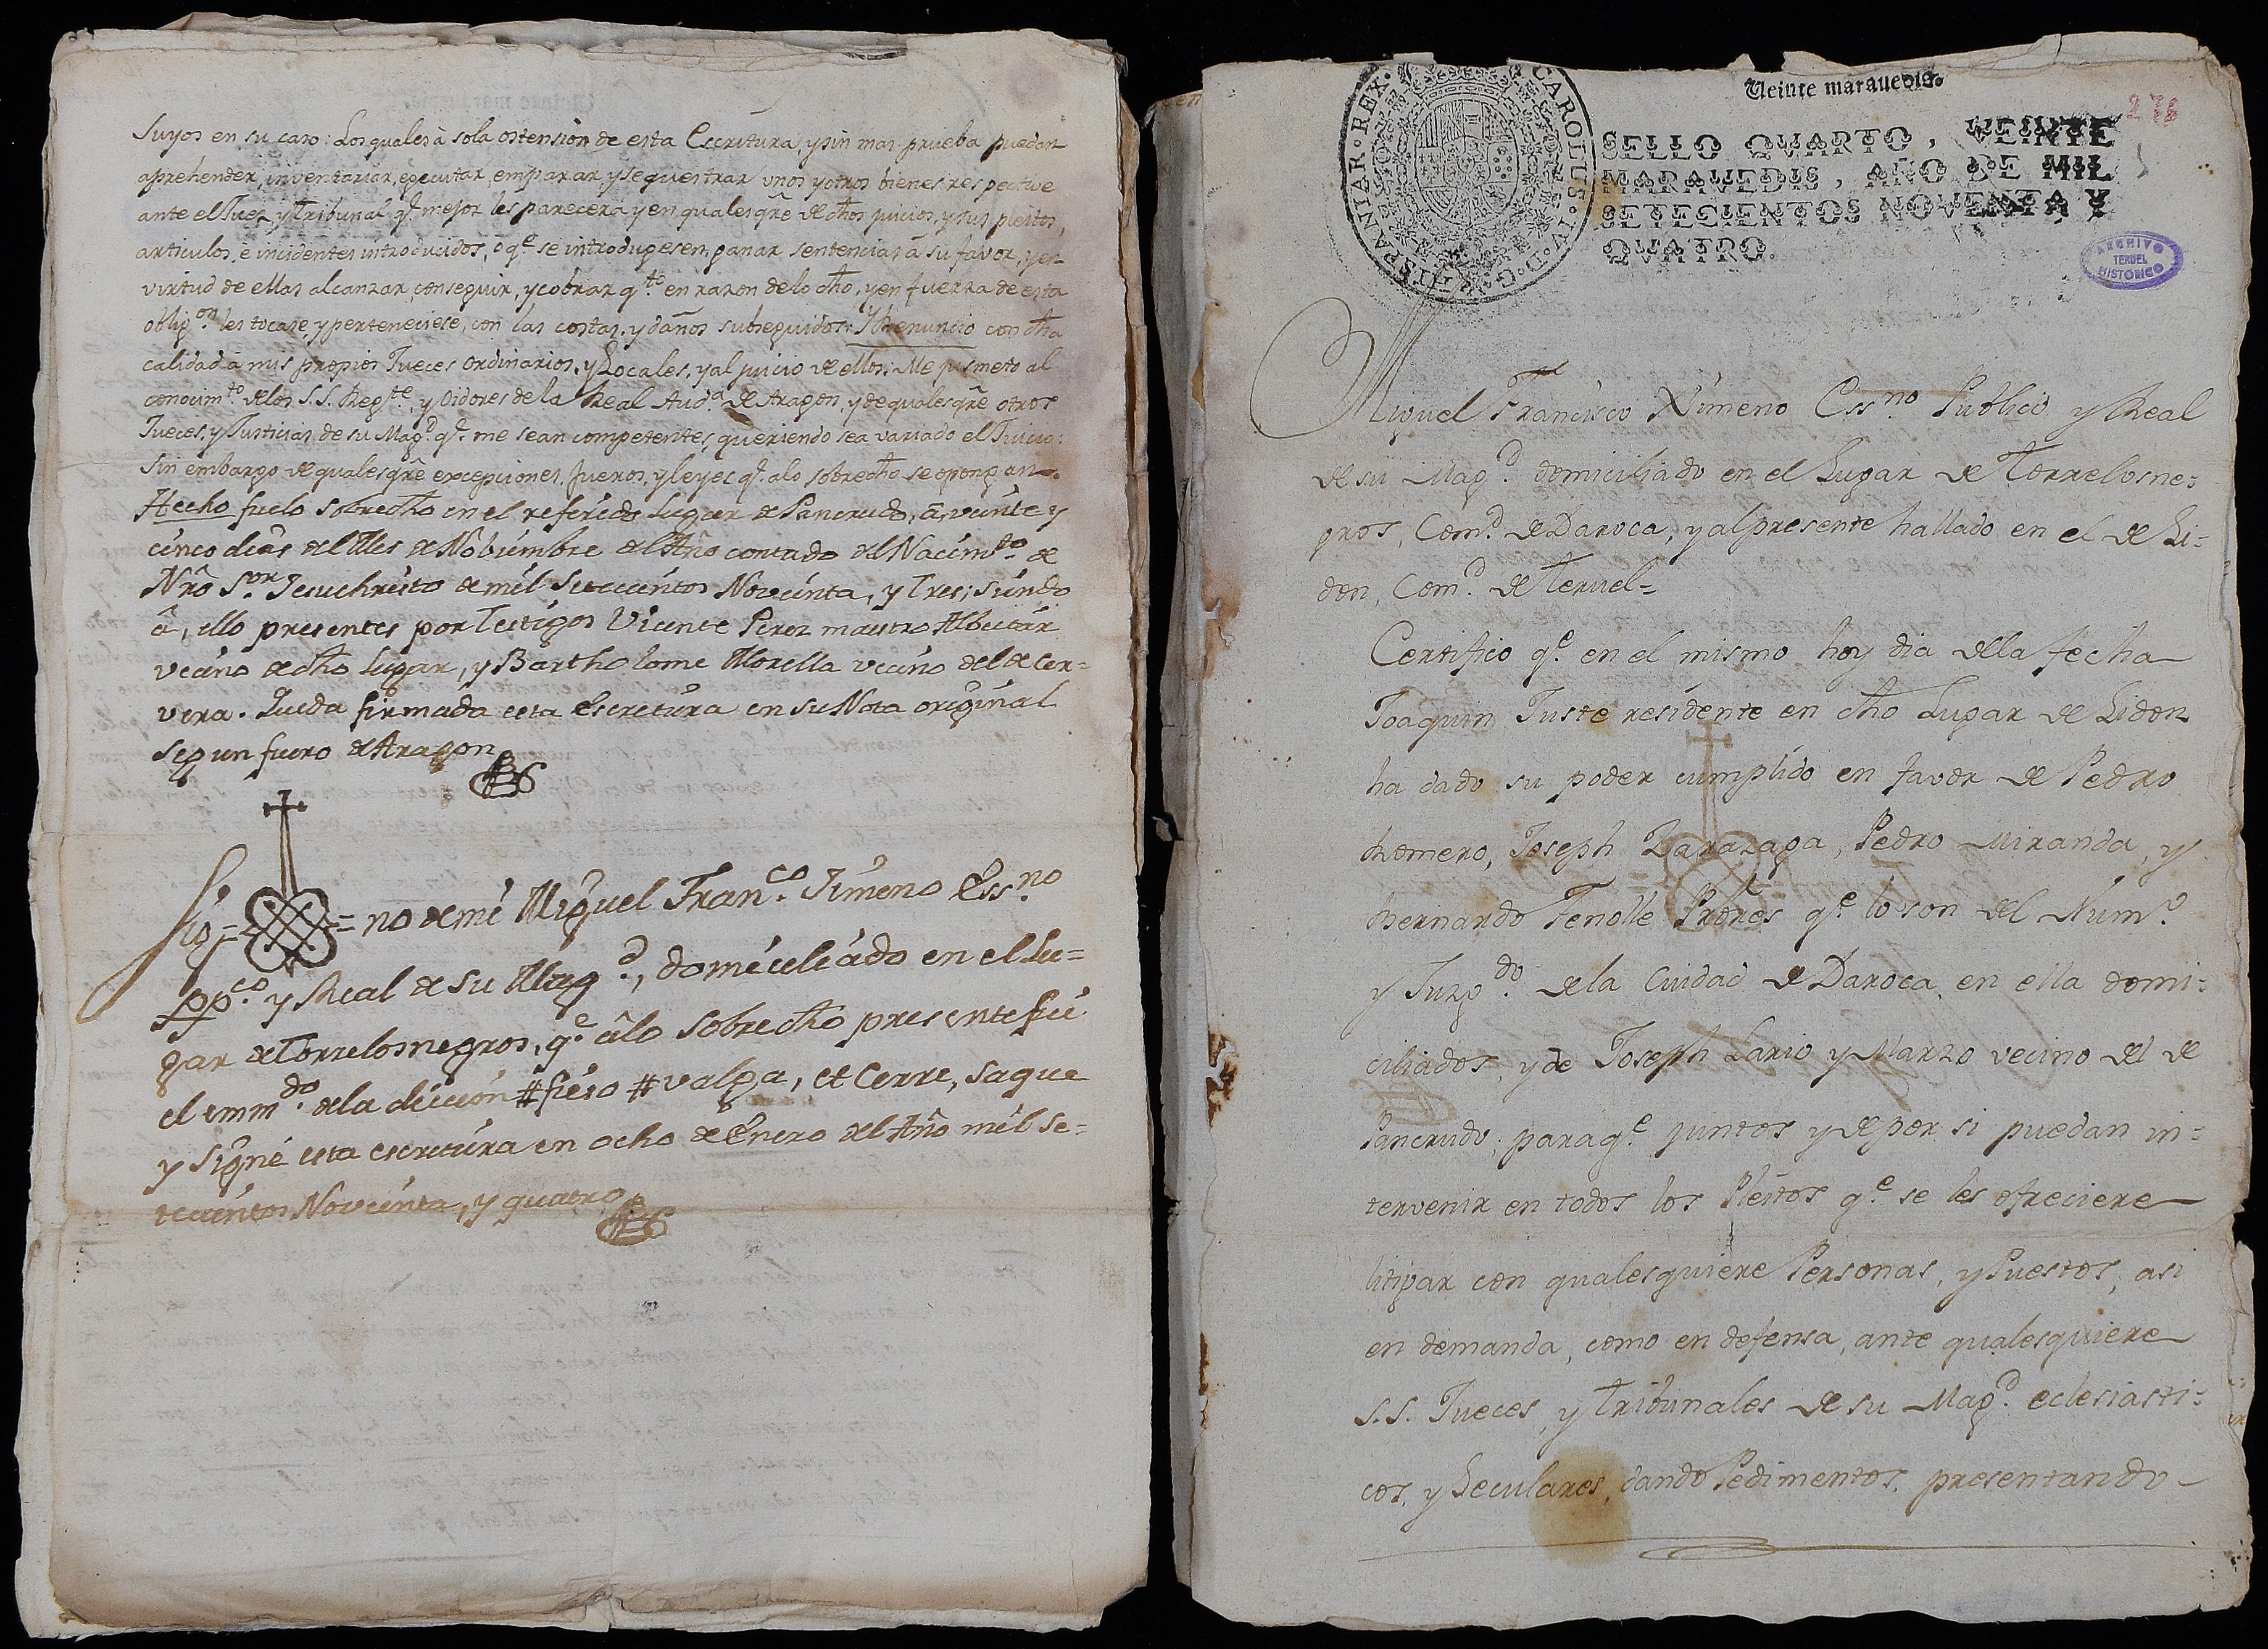 Suyos en su caso: Los quales à sola ostension de esta Escritura, y sin mas prueba puedan
aprehender, inventariar, egecutar, emparar, y sequestrar unos y otros bienes respective
ante el Juez, y Tribunal q.e mejor les parecera y en qualesqre de dhos juicios, y sus pleitos,
articulos, è incidentes introducidos, ò q.e se introdugesen, ganar sentencias a su favor, y en
virtud de ellas alcanzar, conseguir, y cobrar q.to en razon de lo dho, y en fuerza de esta
oblig.on les tocase, y perteneciese, con las costas, y daños subseguidos: Y Renuncio con dha
calidad à mis propios Jueces ordinarios, y Locales, y al juicio de ellos: Me jusmeto al
conocim.to de los S.S. Reg.te, y Oidores de la Real Aud.a de Aragon, y de qualesqre otros
Jueces, y Justicias de su Mag.d q.e me sean competentes, queriendo sea variado el Juicio:
Sin embargo de qualesqre excepciones, fueros, y leyes q.e a lo sobredho se opongan.
Hecho fue lo sobredho en el referido Lugar de Pancrudo, à veinte y
cinco dias del Mes de Nobiembre del Año contado del Nacim.to de
Nro S.or Jesuchristo de mil Setecientos Noventa, y Tres; siendo
â, ello presentes por Testigos Vicente Perez maestro Albeitar
vecino de dho Lugar, y Bartholome Morella vecino del de Cer=
vera. Queda firmada esta Escritura en su Nota original
segun fuero de Aragon
Sig= =no de mi Miguel Fran.co Ximeno Ess.no
pp.co y Real de su Mag.d, domiciliado en el Lu=
gar de Torrelosnegros, q.e à lo sobredho presente fui
el emm.do de la diccion #fieso# valga, et Cerre, saque
y signé esta escritura en ocho de Enero del Año mil Se=
tecientos Noventa, y quatro
Veinte maravedis.
278
CAROLUS.IV.D.G. HISPANIAR.REX.
SELLO QVARTO, VEINTE
MARAVEDIS, AÑO DE MIL
SETECIENTOS NOVENTA Y
QVATRO.
ARCHIVO
TERUEL
HISTÓRICO
Miguel Francisco Ximeno Ess.no Publico y Real
de su Mag.d domiciliado en el Lugar de Torrelosne=
gros, Com.d de Daroca, y al presente hallado en el de Li=
don, Com.d de Teruel=
Certifico q.e en el mismo hoy dia de la fecha
Joaquin Juste residente en dho Lugar de Lidon
ha dado su poder cumplido en favor de Pedro
Romero, Joseph Zarazaga, Pedro Miranda, y
Hernando Fenolle Prores q.e lo son del Num.o
y Juzg.do de la Ciudad de Daroca, en ella domi=
ciliados, y de Joseph Lario y Marzo vecino del de
Pancrudo; para q.e juntos y de por si puedan in=
tervenir en todos los Pleitos q.e se les ofreciere
litigar con qualesquiere Personas, y Puestos, asi
en demanda, como en defensa, ante qualesquiere
S.S. Jueces, y Tribunales de su Mag.d eclesiasti=
cos, y Seculares, dando Pedimentos, presentando